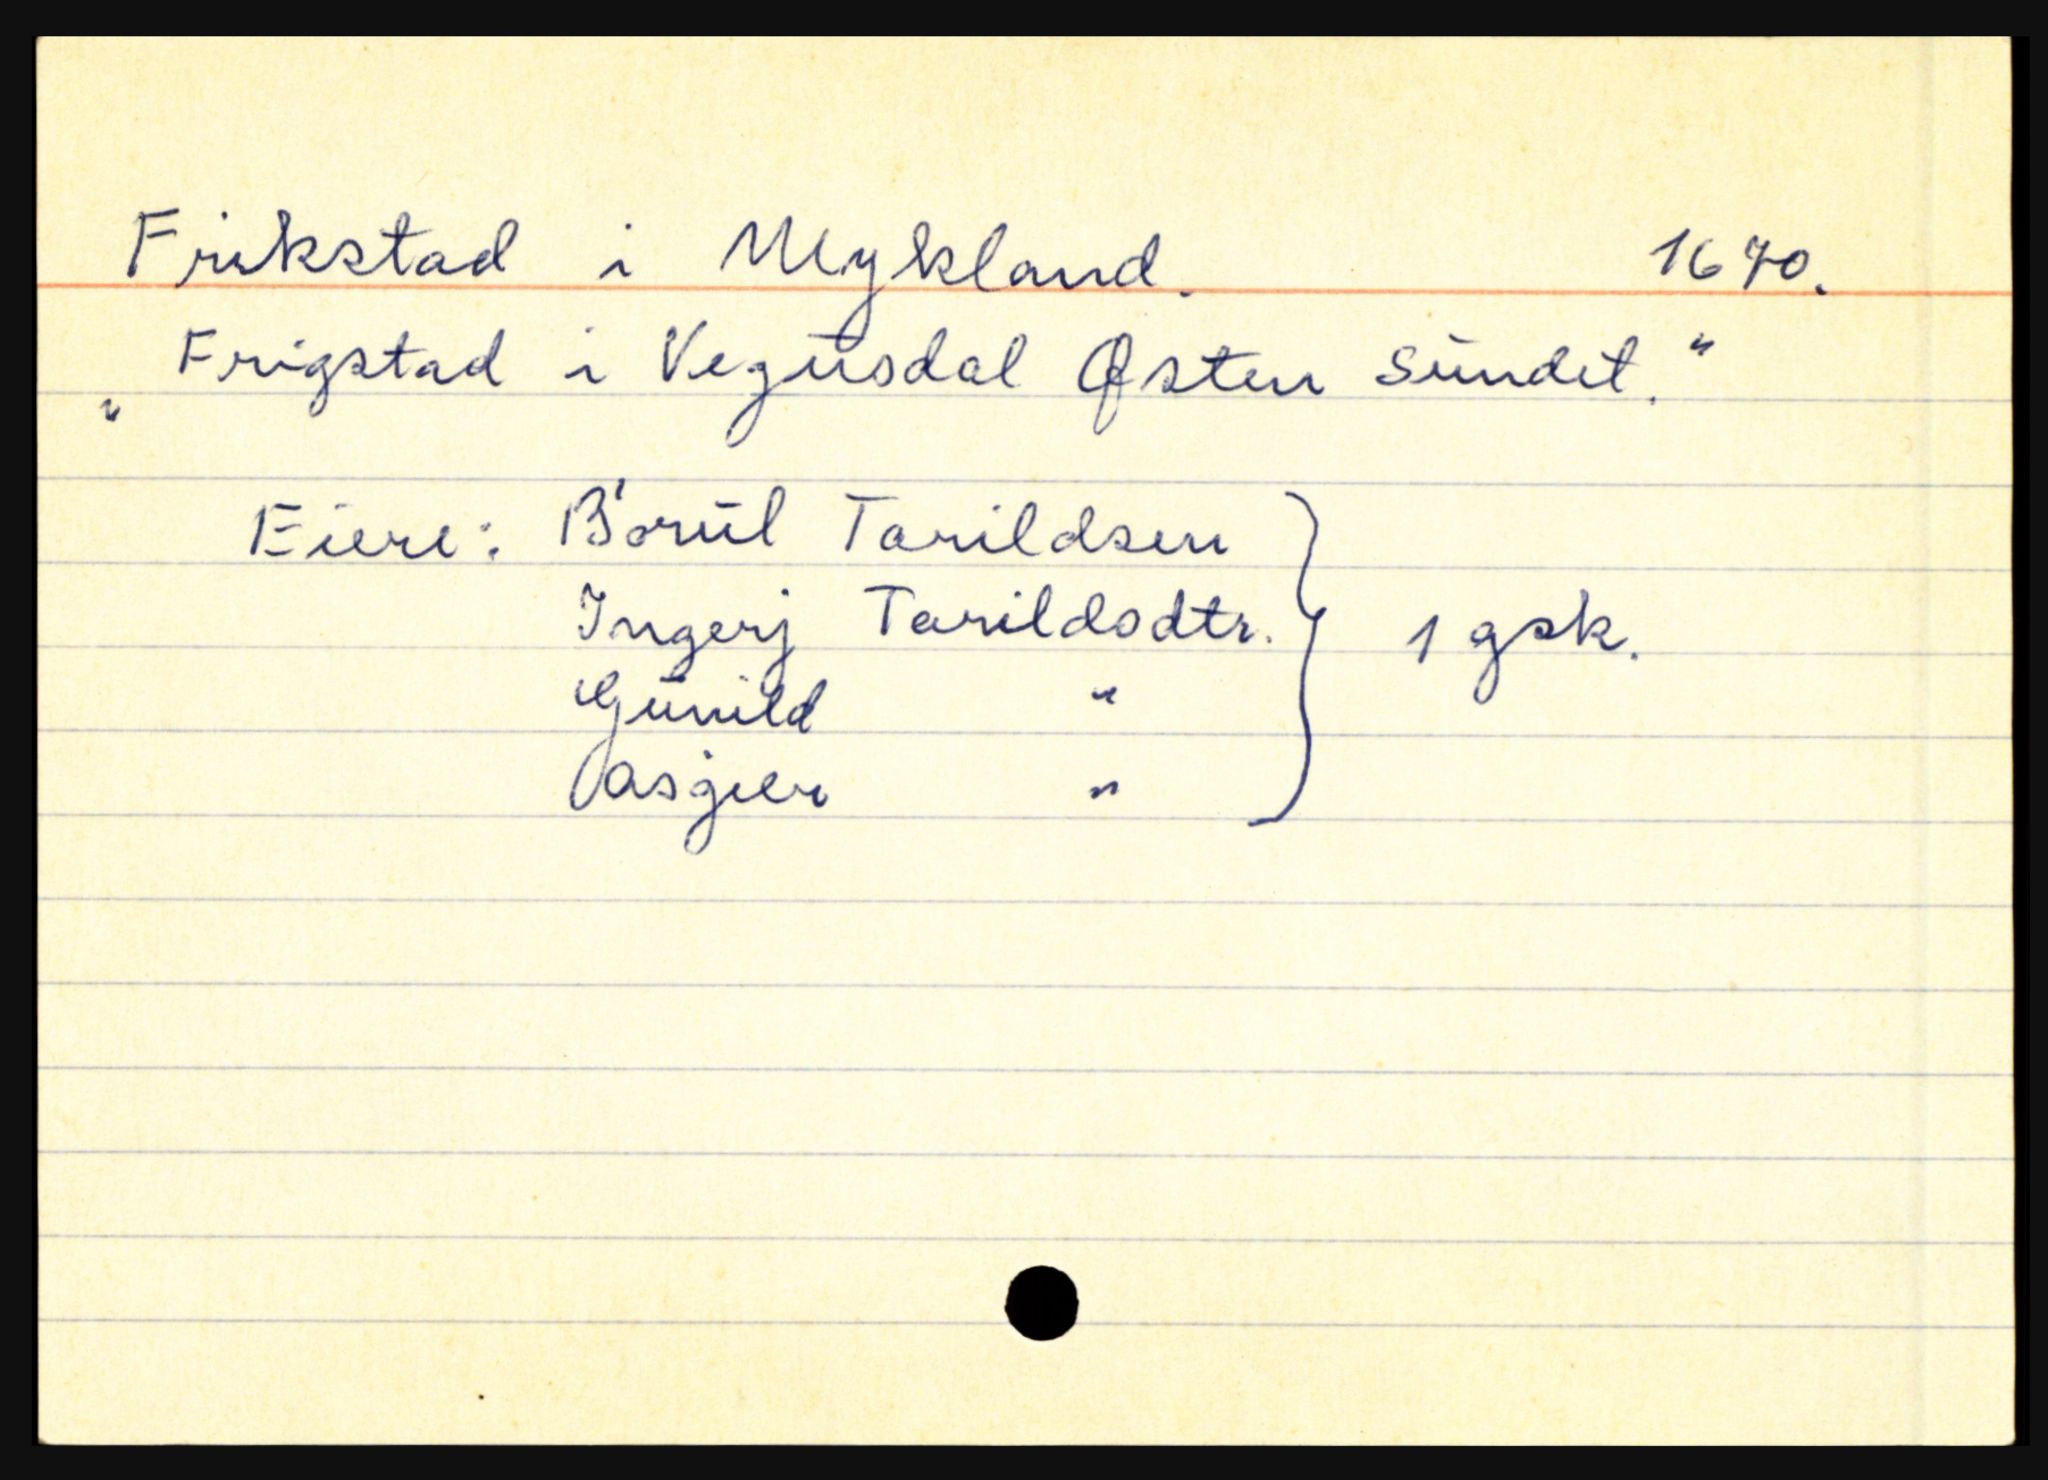 Frikstad i Mykland. 1670.
„Frigstad i Vegusdal Østen Sundet."
Eiere: Borul Tarildsen
Ingerj Tarildsdtr. } 1 gsk.
Gunild "
Aasgier "